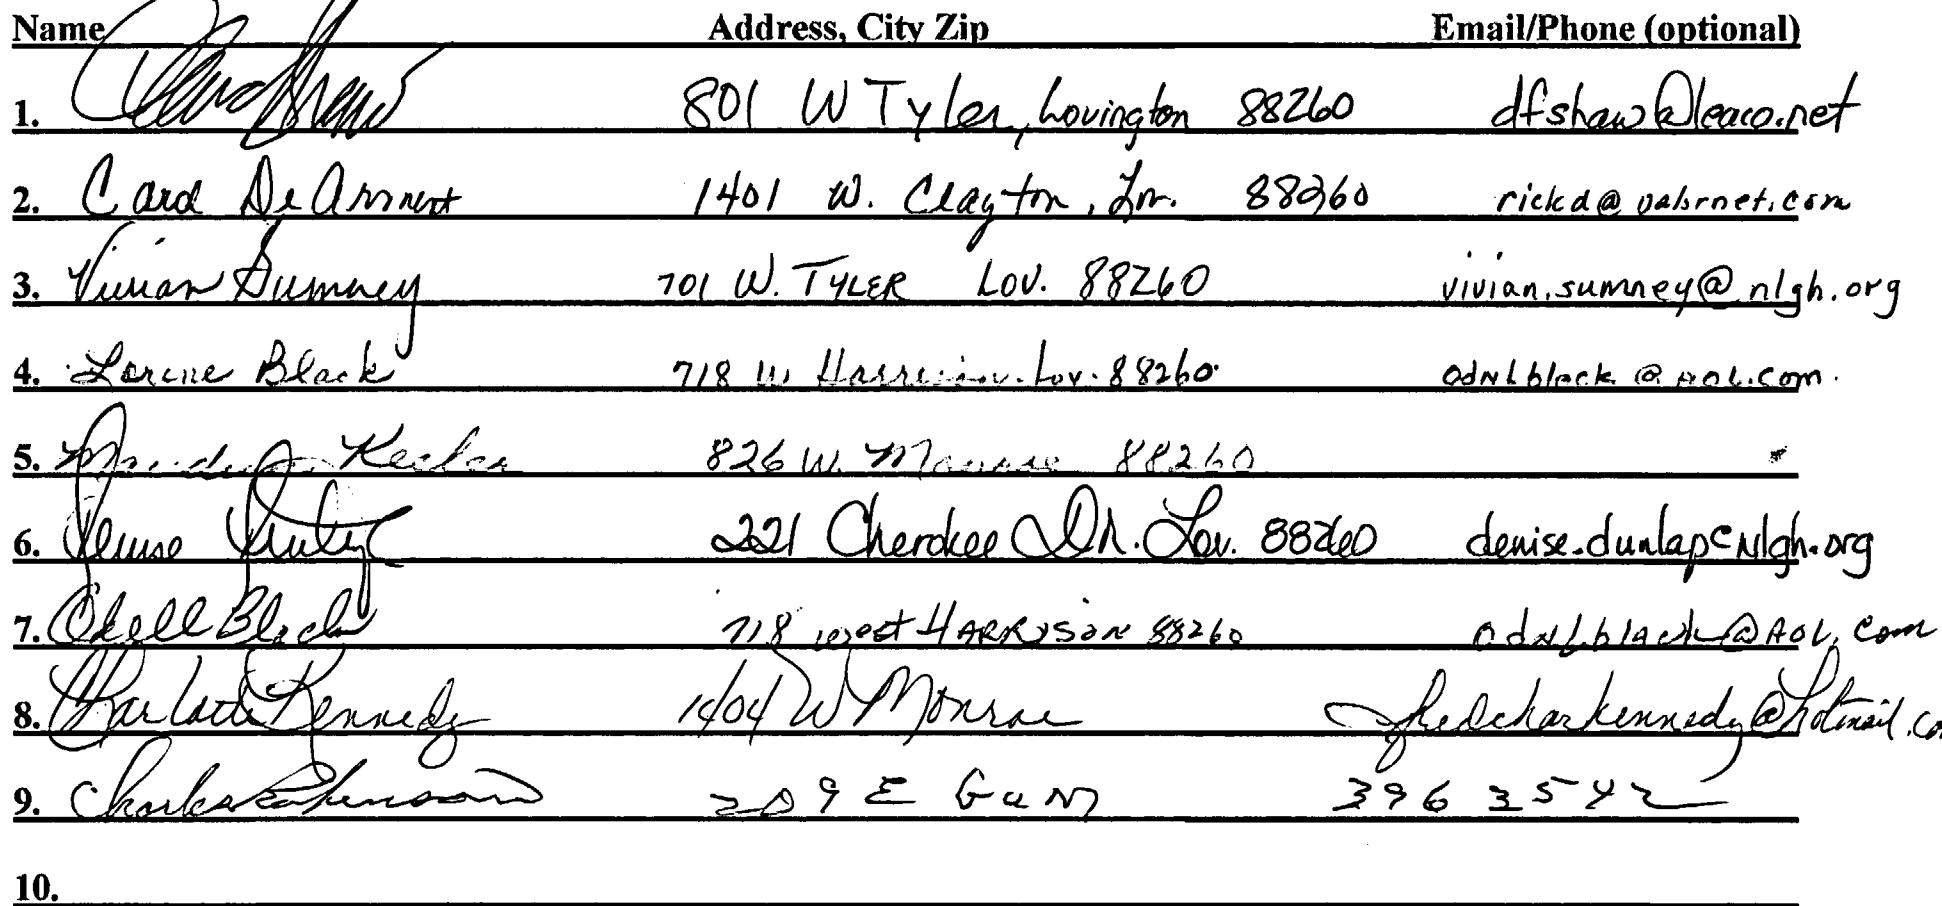 Name Address, City Zip Email/Phone (optional)
1. 801 W Tyler, Lovington 88260 dfshaw@leaco.net
2. De 1401 W. Clayton, Lov. 88260 rickd@
3. Vivian Sumney 701 W. TYLER LOV. 88260 vivian.sumney@nlgh.org
4. Lorene Black 718 W Harrison Lov. 88260. odnlblack@AOL.com.
5. 826 W. Monroe 88260
6. Denise 221 Cherokee Dr. Lov. 88260 denise.dunlap@nlgh.org
7. Odell Black 718 west HARRISON 88260 odnLblack@AOL.com
8. Charlotte Kennedy 1404 W Monroe fredcharkennedy@hotmail.co
9. Charles 209 E GUM 396 3542
10.